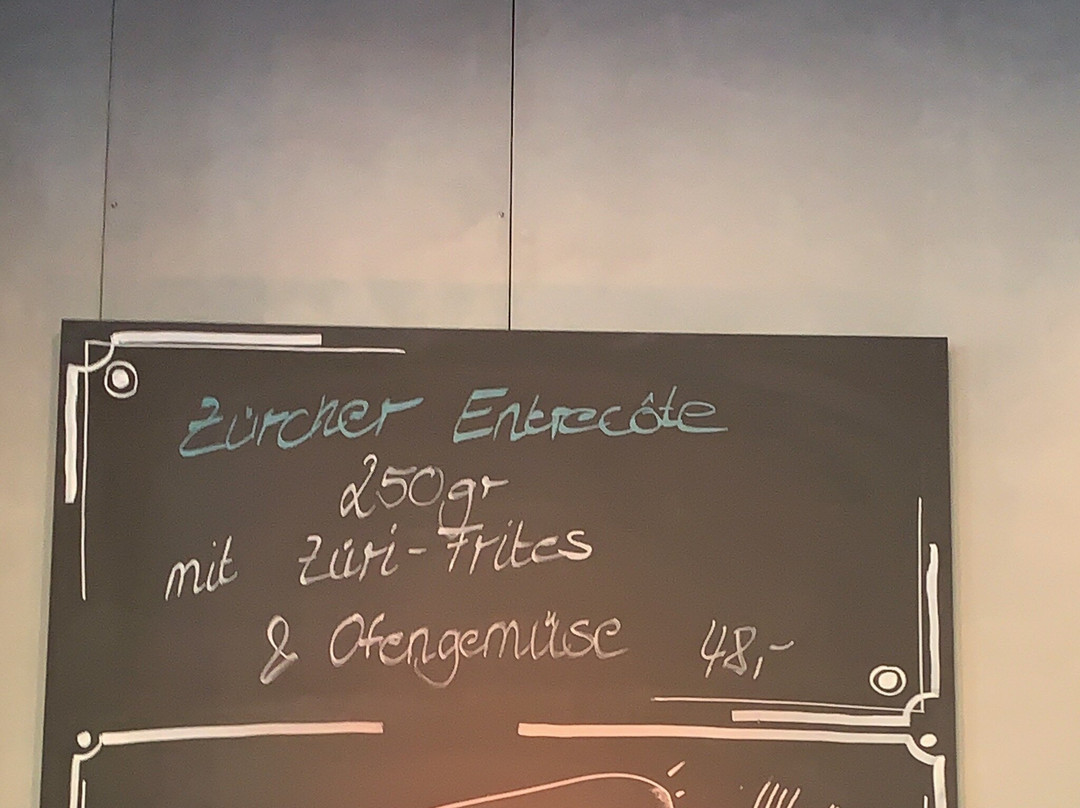 Zürcher Entrecôte
250gr
mit Züri-Frites
& Ofengemüse 48,-